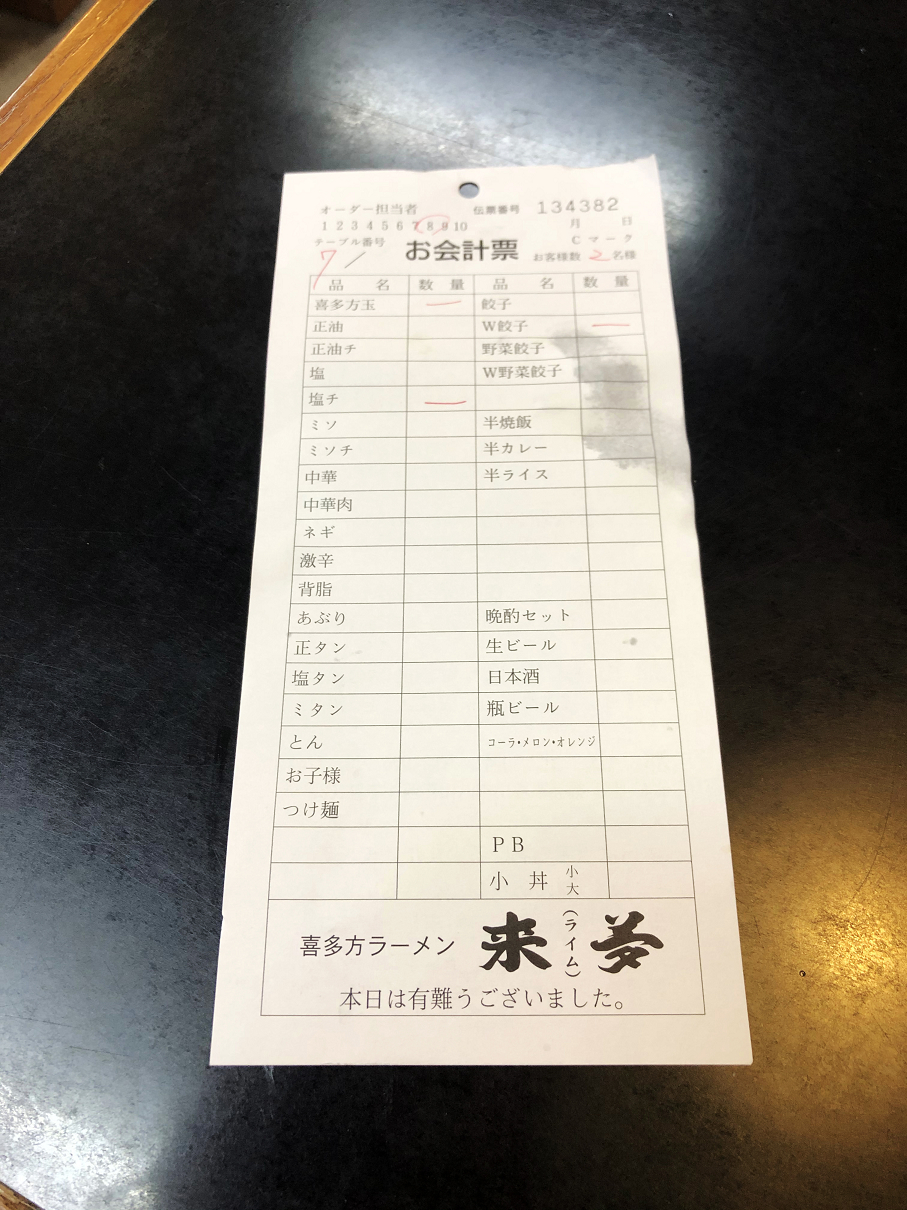 オーダー担当者 伝票番号 134382
1 2 3 4 5 6 7 8 9 10 月 日
テーブル番号 Cマーク
7 お会計票 お客様数 2 名様
品 名 数 量 品 名 数 量
喜多方玉 一 餃子
正油 W餃子 一
正油チ 野菜餃子
塩 W野菜餃子
塩チ 一
ミソ 半焼飯
ミソチ 半カレー
中華 半ライス
中華肉
ネギ
激辛
背脂
あぶり 晩酌セット
正タン 生ビール
塩タン 日本酒
ミタン 瓶ビール
とん コーラ・メロン・オレンジ
お子様
つけ麺
PB
小 丼 小 大
喜多方ラーメン 来夢 (ライム)
本日は有難うございました。